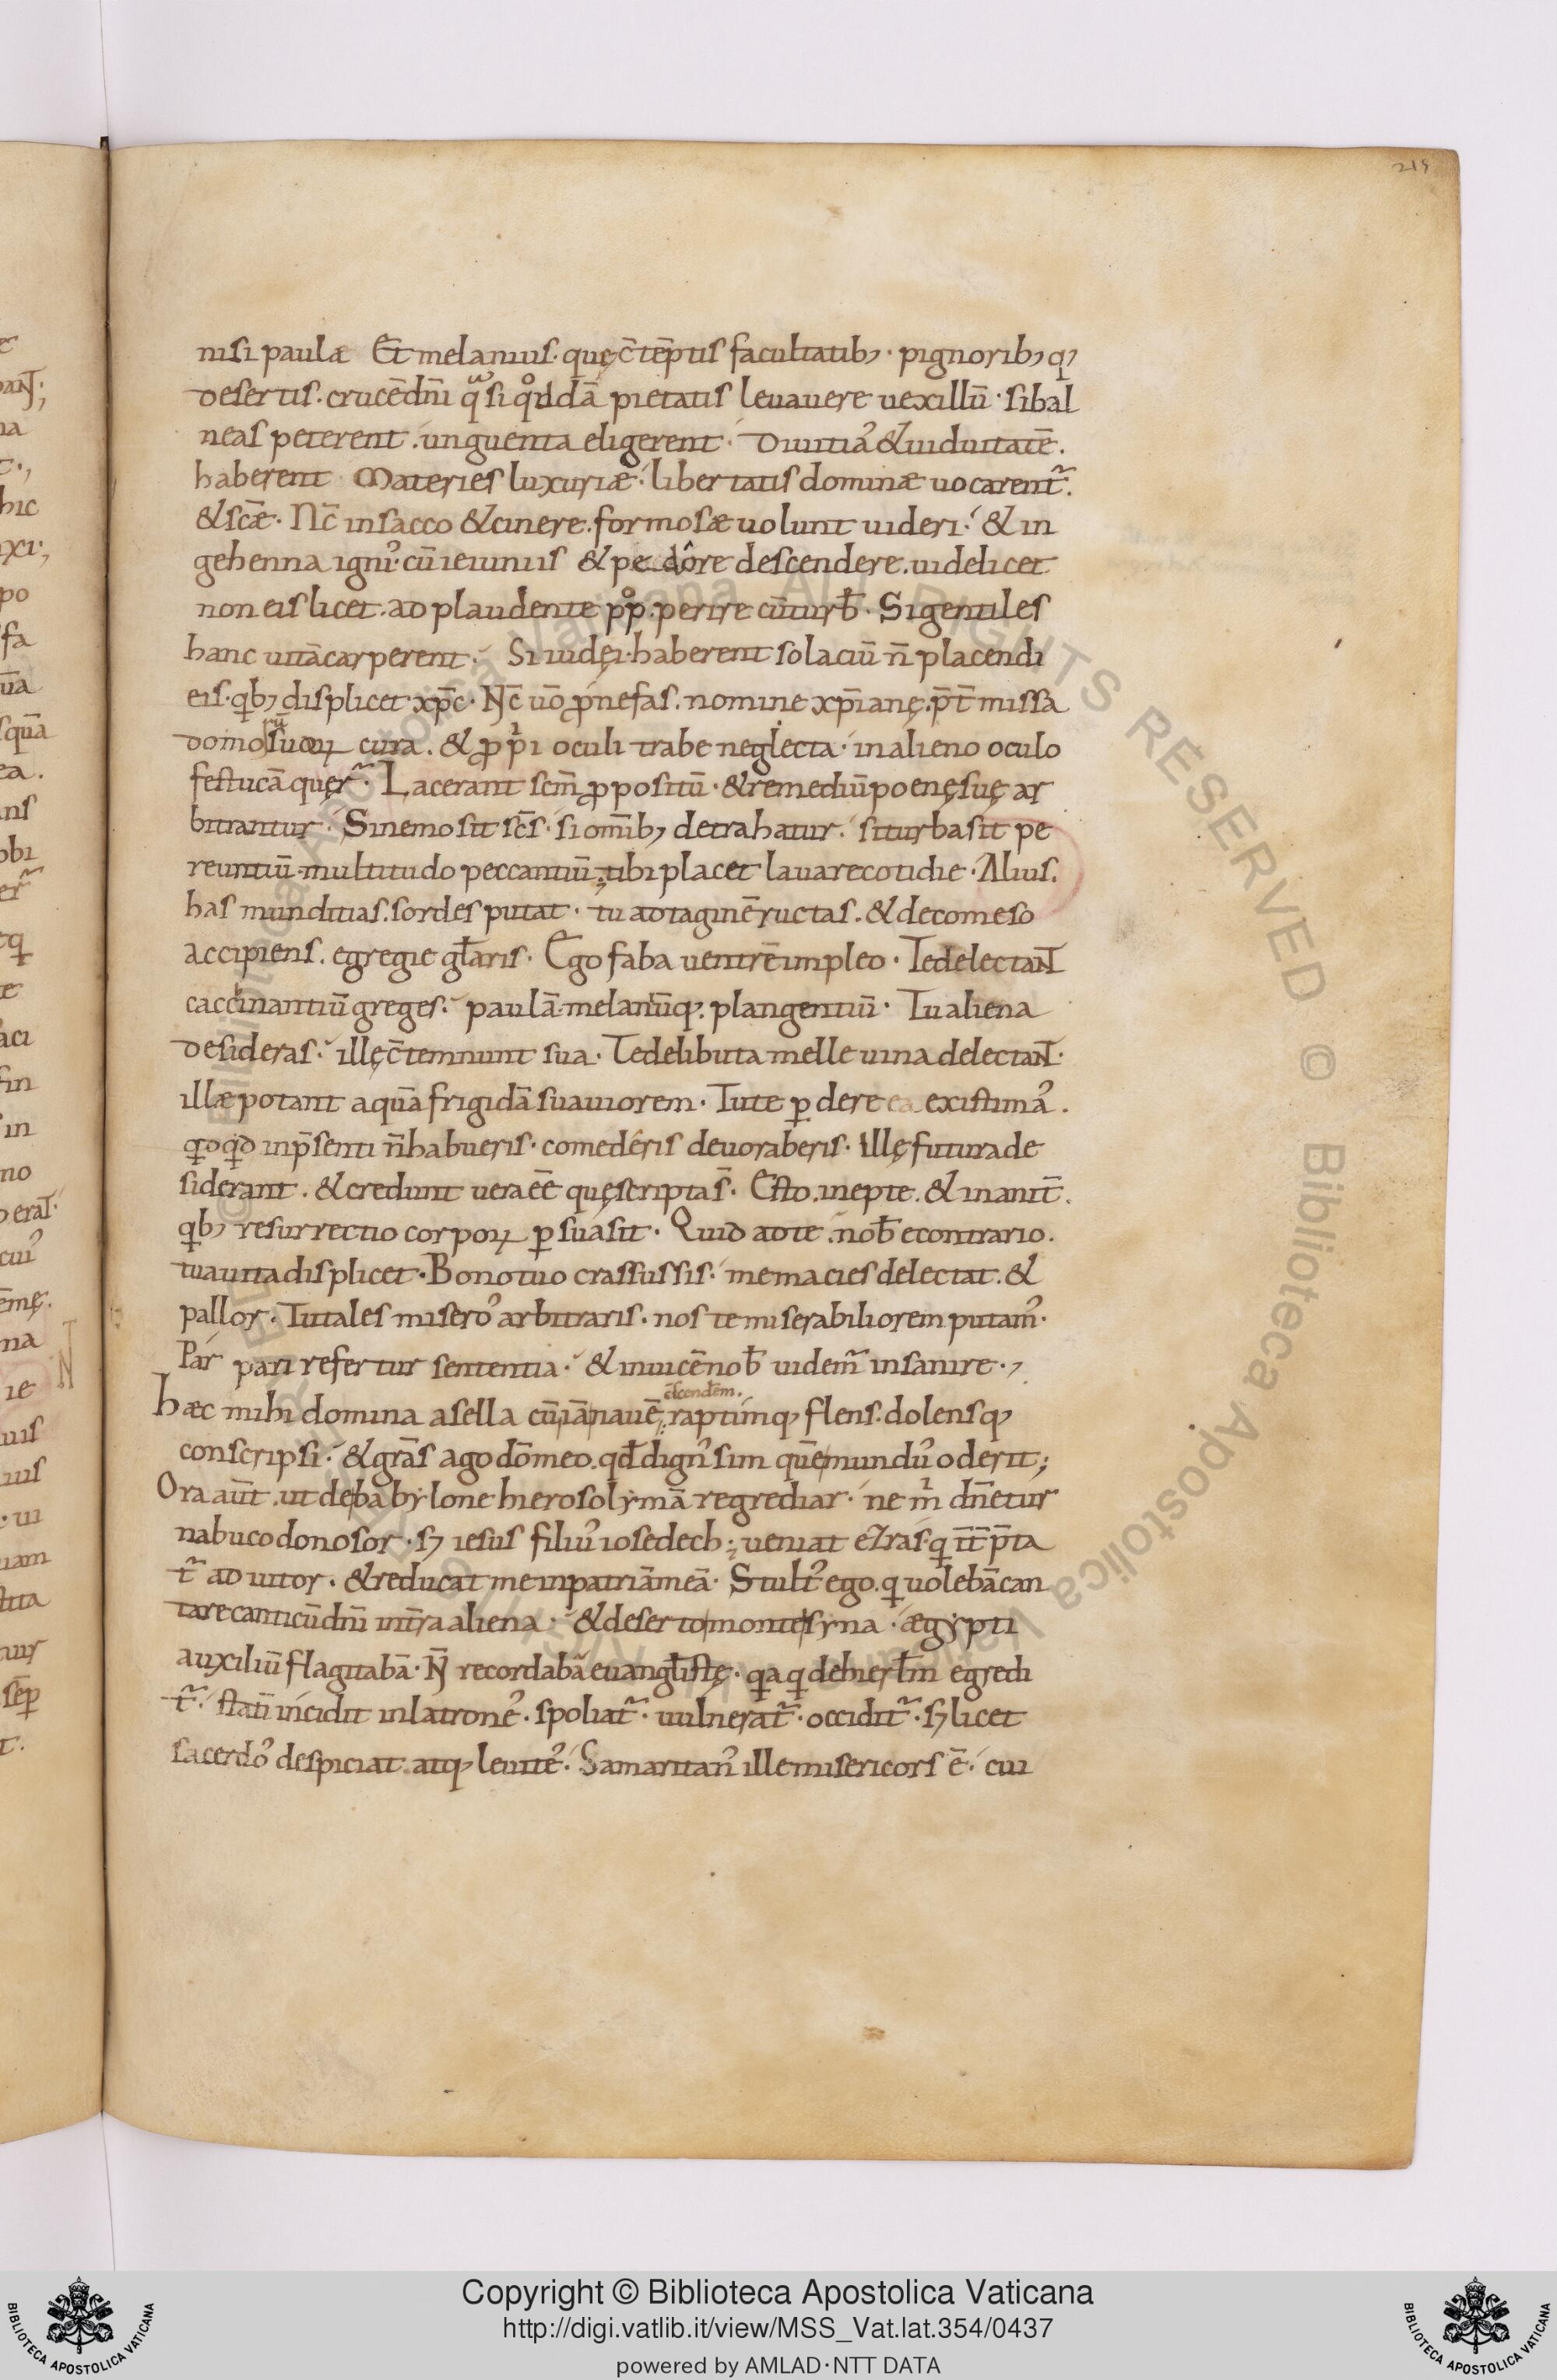 219
nisi paulæ Et melanius· quę c̄tēptis facultatib;· pignorib; q;
desertis· crucē dn̄i q̾si qd̊dā pietatis levavere vexillū· si bal
neas peterent· unguenta eligerent· divitia᾿ & viduitatē·
haberent materies luxuriæ· libertatis dominæ vocarent᷑·
& sc̄æ· Nc̄ in sacco & cinere· formosæ volunt videri· & in
gehenna igni᾿ cū ieiuniis & pe dôre descendere· videlicet
non eis licet· ad plaudente pp̊· perire cū turƀ· Si gentiles
hanc vitā carperent· Si iudęi· haberent solaciū n̄ placendi
eis· qb; displicet xp̄c· Nc̄ vō ꝓ nefas· nomine xp̄ianę· p̄t̄missa
domo suoꝝ cura· & ꝓpⁱi oculi trabe neglecta· in alieno oculo
festucā quęr᷑· Lacerant scm̄ ꝓpositū· & remediū poenę suę ar
bitrantur· Si nemo sit sc̄s· si om̄ib; detrahatur· si turba sit pe
reuntiū multitudo peccantiū tibi placet lavare cotidie· Alius·
has munditias· sordes putat· tu ad taginē ructas· & de comeso
accipiens· egregie gl̄aris· Ego faba ventrē impleo· Te delectant
caccinantiū greges· paulā melaniūq;· plangentiū· Tu aliena
desideras· illę c̄temnunt sua· Te delibuta melle vina delectant·
illæ potant aquā frigidā suaviorem· Tu te ꝑdere ea existima᾿·
qdqd in p̄senti n̄ habueris· comedêris devoraberis· illę futura de
siderant· & credunt vera eē quę scripta s̄· Esto· inepte· & inanit̄·
qb; resurrectio corpoꝝ ꝑsuasit· Quid ad te· noƀ e contrario·
tua vita displicet· Bono tuo crassus sis· me macies delectat· &
pallor· Tu tales misero᾿ arbitraris· nos te miserabiliorem putam᾿·
Par pari refertur sententia· & invicē noƀ videm᷑ insanire·,
āscendēm·
hæc mihi domina asella cū iā navē raptimq; flens· dolensq;
conscripsi· & gra̅s ago dō meo· qđ dign᾿ sim quē mundu᾿ oderit;
Ora aūt· ut de babylone hierosolymā regrediar· ne mⁱ dn̄etur
nabucodonosor· s; iesus filiu᾿ iosedech; veniat ezras· q īt̄p̄ta
t᷑ adiutor· & reducat me in patriā meā· Stult᾿ ego· q volebā can
tare canticū dn̄i in t̄ra aliena· & deserto monte syna· ægypti
auxiliū flagitabā· N̄ recordabā evangl̄istę· qa q de hierl̄m egredi
t᷑· stati᷑ incidit in latrone᾿· spoliat᷑· vulnerat᷑· occidit᷑· s; licet
sacerdo᾿ despiciat atq; levite᾿· Samaritan᾿ ille misericors ē· cui
Copyright © Biblioteca Apostolica Vaticana
http://digi.vatlib.it/view/MSS_Vat.lat.354/0437
powered by AMLAD·NTT DATA
BIBLIOTECA APOSTOLICA VATICANA
BIBLIOTECA APOSTOLICA VATICANA